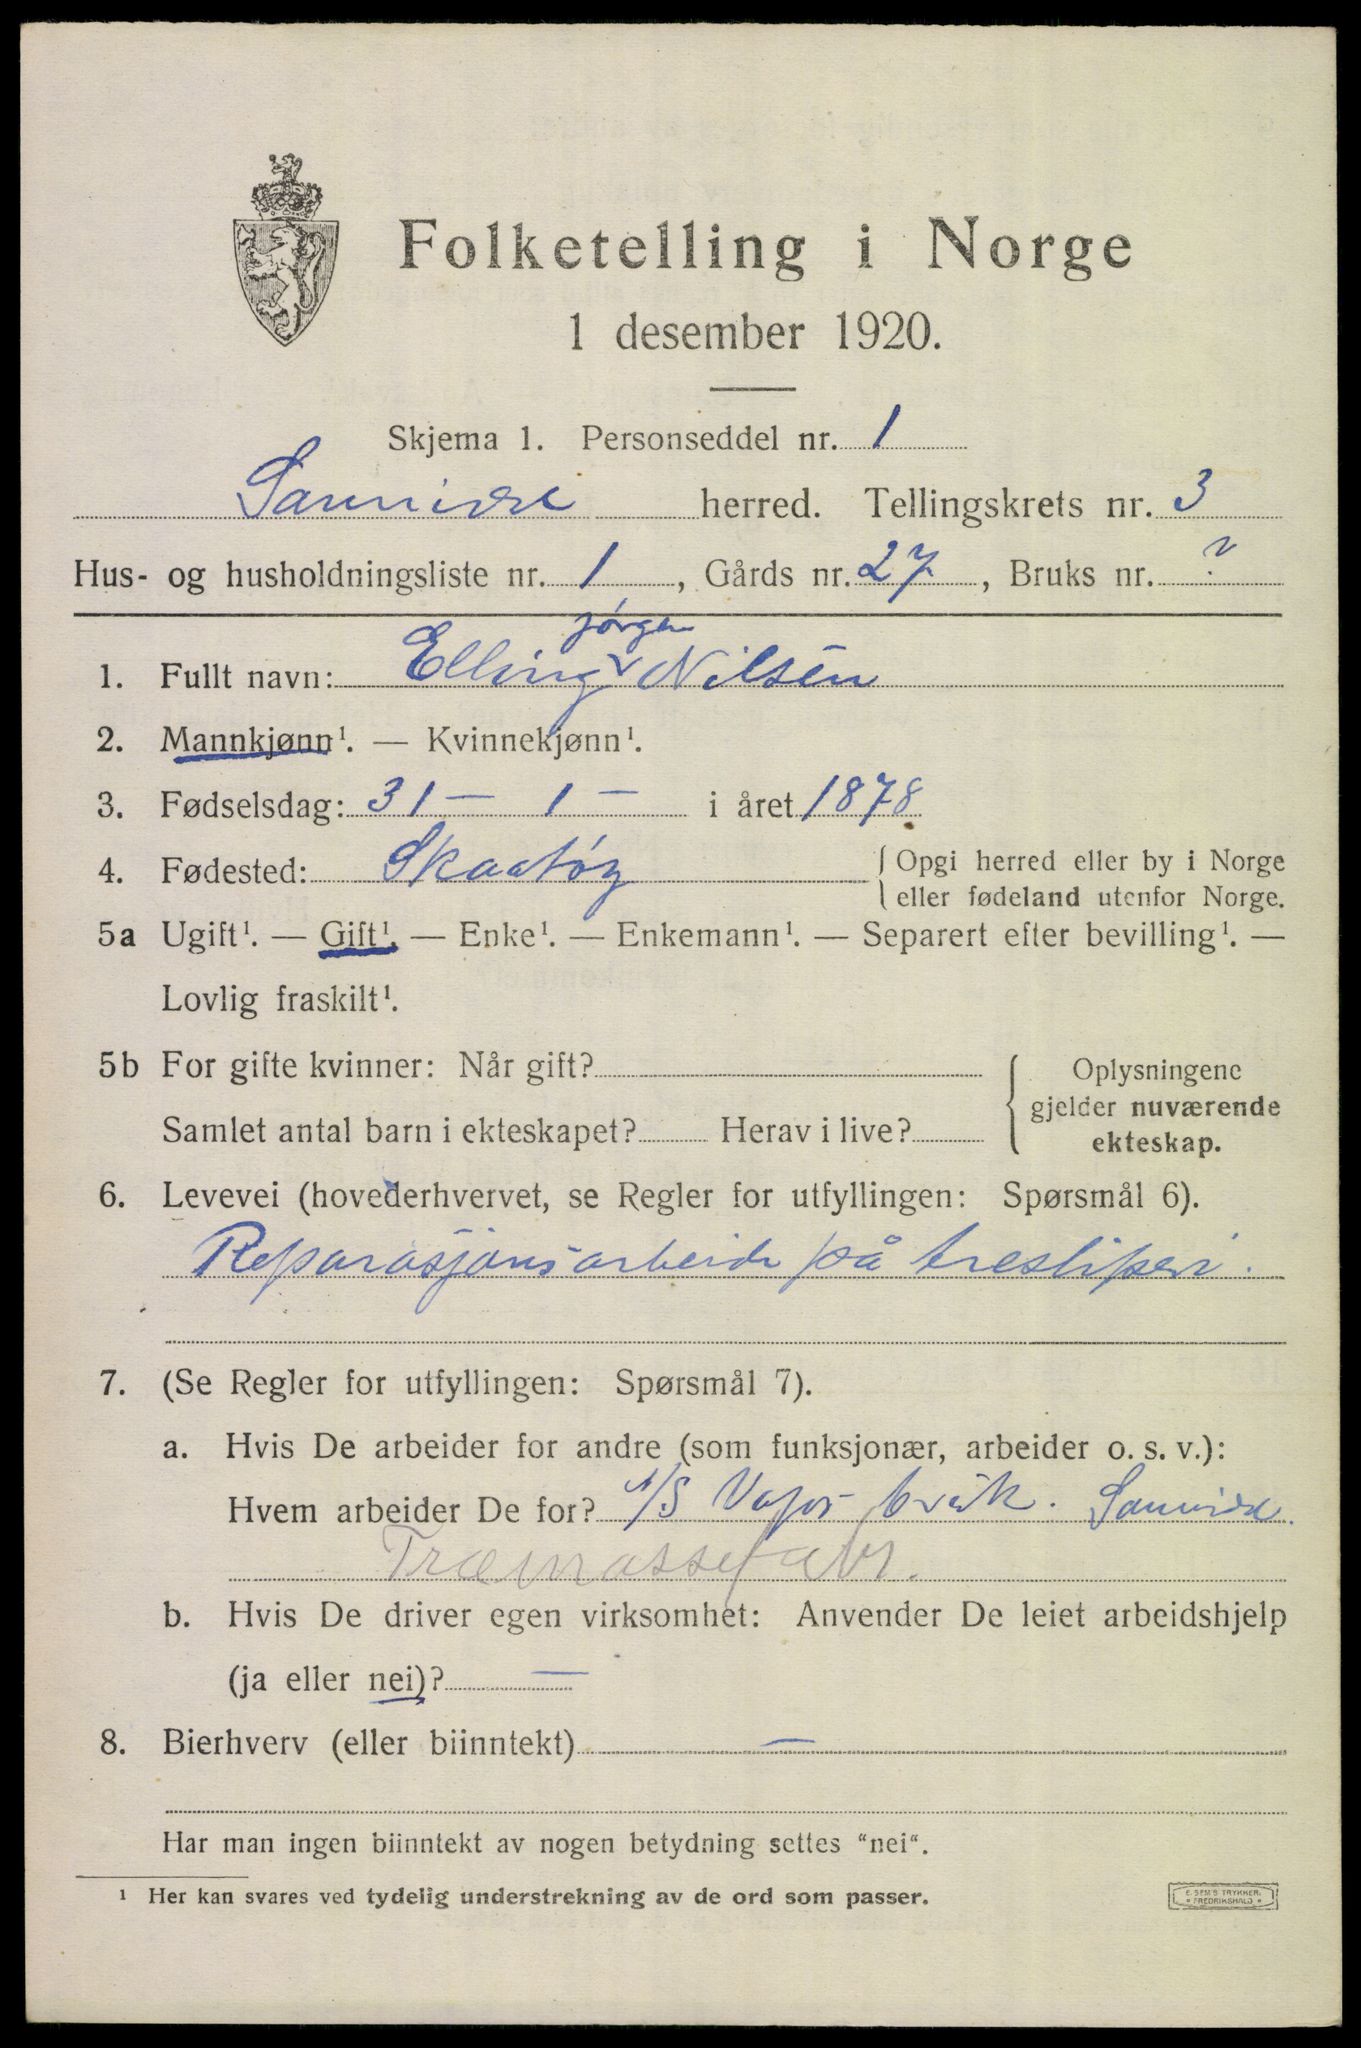 Folketelling i Norge
1 desember 1920.
Skjema 1. Personseddel nr. 1
Sannidal herred. Tellingskrets nr. 3
Hus- og husholdningsliste nr. 1, Gårds nr. 27, Bruks nr. ?
Jørgen
1. Fullt navn: Elling Nilsen
2. Mannkjønn¹. — Kvinnekjønn¹.
3. Fødselsdag: 31 – 1 – i året 1878
4. Fødested: Skaatøy { Opgi herred eller by i Norge
eller fødeland utenfor Norge.
5a Ugift¹. — Gift¹. — Enke¹. — Enkemann¹. — Separert efter bevilling¹. —
Lovlig fraskilt¹.
5b For gifte kvinner: Når gift? { Oplysningene
gjelder nuværende
Samlet antal barn i ekteskapet? Herav i live?
ekteskap.
6. Levevei (hovederhvervet, se Regler for utfyllingen: Spørsmål 6).
Reparasjonsarbeide på tresliperi.
7. (Se Regler for utfyllingen: Spørsmål 7).
a. Hvis De arbeider for andre (som funksjonær, arbeider o. s. v.):
Hvem arbeider De for? A/S Vafos bruk. Sannidal.
Træmassefabr.
b. Hvis De driver egen virksomhet: Anvender De leiet arbeidshjelp
(ja eller nei)? —
8. Bierhverv (eller biinntekt) —
Har man ingen biinntekt av nogen betydning settes "nei".
¹ Her kan svares ved tydelig understrekning av de ord som passer.
E. SEM'S TRYKKERI
FREDRIKSHALD